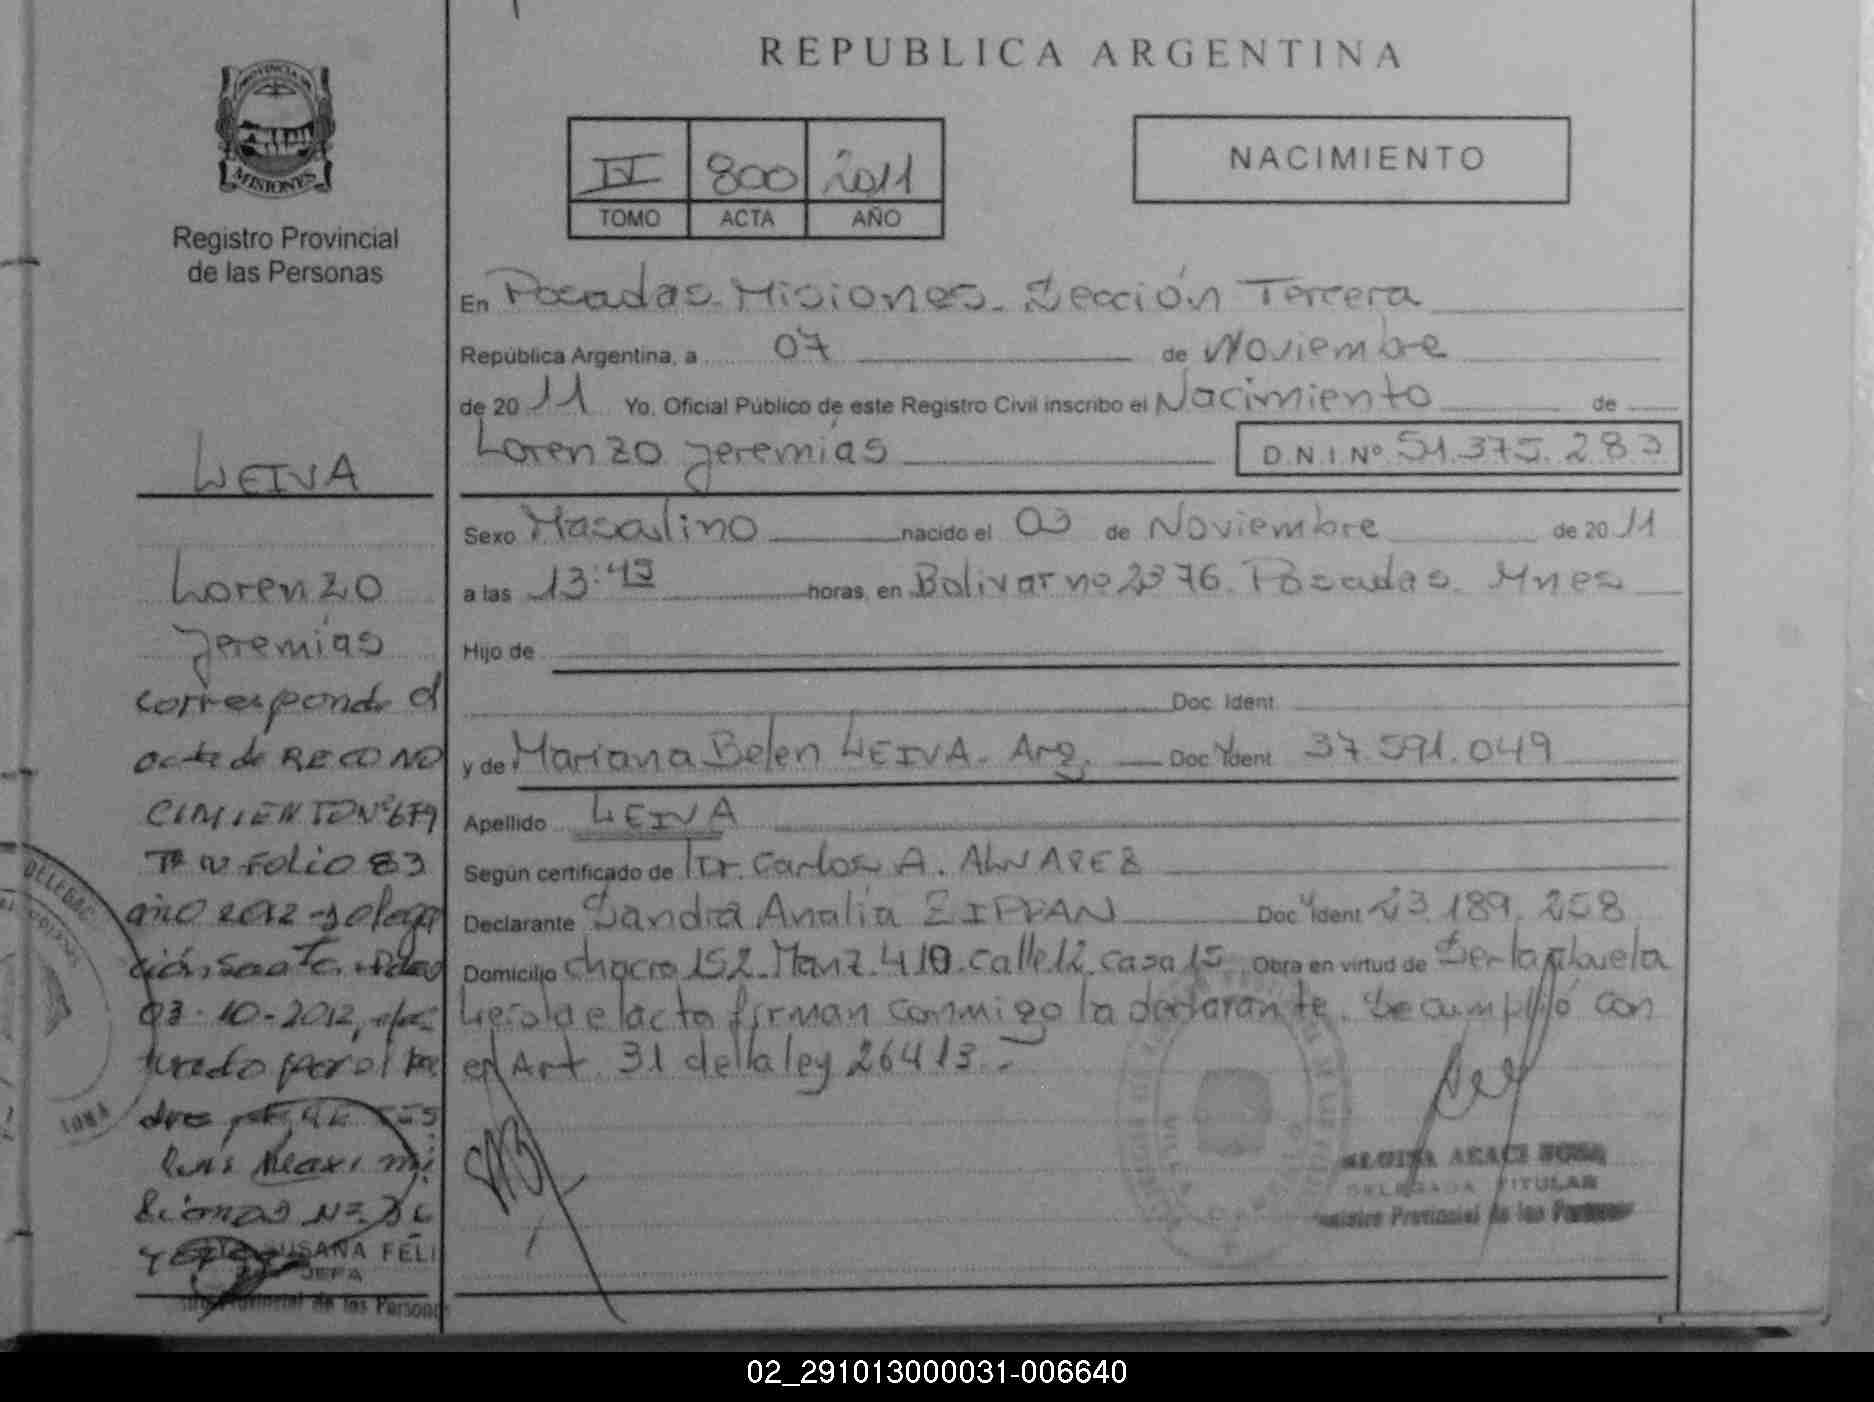 REPUBLICA ARGENTINA
PROVINCIA DE
MISIONES
Registro Provincial
de las Personas
800 2011
TOMO ACTA AÑO
NACIMIENTO
En Posadas. Misiones. Sección Tercera
República Argentina, a 07 de Noviembre
de 2011 Yo, Oficial Público de este Registro Civil inscribo el Nacimiento de
Lorenzo Jeremías
D.N.I Nº 51.375.283
Sexo Masculino nacido el 03 de Noviembre de 2011
a las 13:43 horas, en Bolivar nº 2376. Posadas. Mnes
Hijo de
Doc. Ident.
y de Mariana Belen LEIVA. Arg. Doc. Ident. 37.591.049
Apellido LEIVA
Según certificado de Dr. Carlos A. ALVAREZ
Declarante Sandra Analía Doc. Ident. 23.189.258
Domicilio chacra 152. Manz. 410. calle 12. casa 15 Obra en virtud de Ser la abuela
Leída el acta firman conmigo la declarante. Se cumplió con
el Art. 31 de la ley 26413.-
DELEGADA TITULAR
Registro Provincial de las Personas
LEIVA
Lorenzo
Jeremías
corresponde el
acta de RECONO
CIMIENTO Nº 679
Tº IV FOLIO 83
año 2012 - Delega
ción
03-10-2012, efec
tuado por el pa
dre
Luis Maximi
SUSANA FELI
JEFA
Provincial de las Personas
02_291013000031-006640